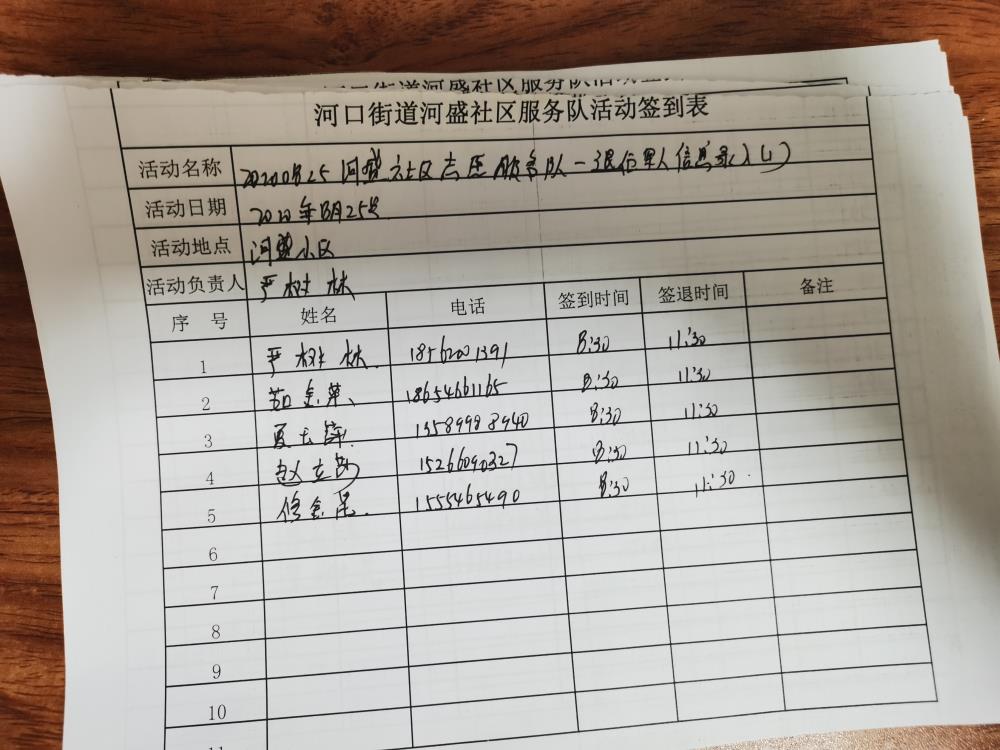 河口街道河盛社区服务队活动签到表
活动名称 20200825河盛社区志愿服务队一退役军人信息录入(1)
活动日期 2020年8月25号
活动地点 河盛小区
活动负责人 严树林
序号 姓名 电话 签到时间 签退时间 备注
1 严树林 18562001391 8:30 11:30
2 18654661165 8:30 11:30
3 13589998940 8:30 11:30
4 15266090327 8:30 11:30
5 1555465490 8:30 11:30
6
7
8
9
10